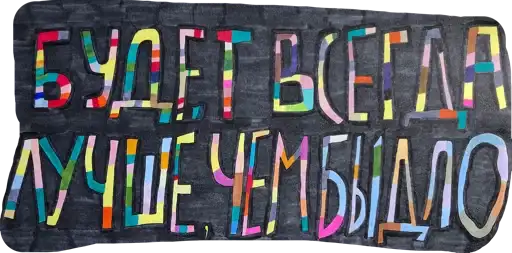 БУДЕТ ВСЕГДА
ЛУЧШЕ, ЧЕМ БЫДЛО